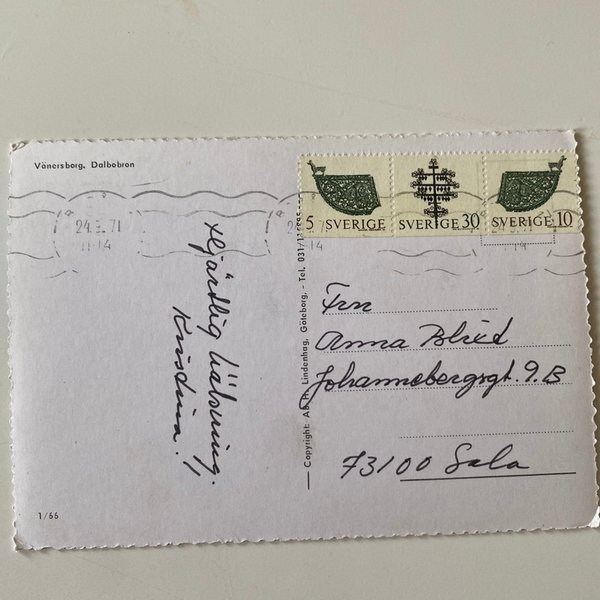 Vänersborg. Dalbobron
5 SVERIGE
SVERIGE 30
SVERIGE 10
24.3.71
-14
Hjärtlig hälsning.
Kristina.
Copyright: AB H. Lindenhag, Göteborg. - Tel. 031/
Fru
Anna Blixt
Johannebergsgt. 9.B
73100 Sala
1/66